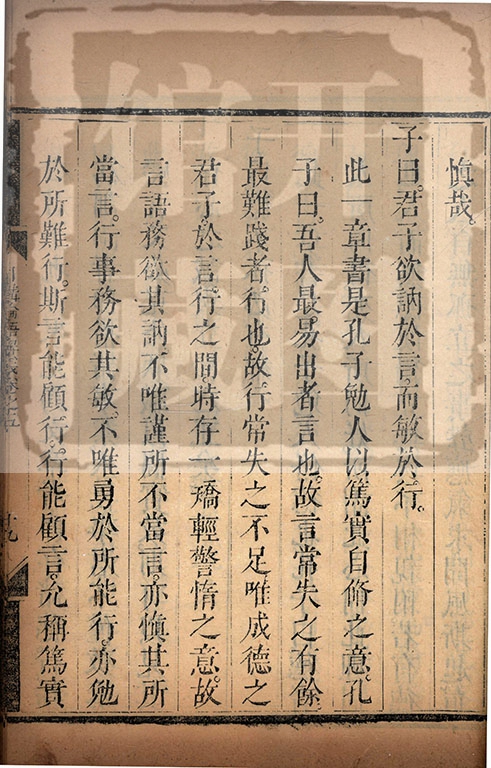 慎哉。
子曰。君子欲訥於言。而敏於行。
此一章書是孔子勉人以篤實自脩之意。孔
子曰。吾人最易出者言也。故言常失之有餘
最難踐者行也。故行常失之不足。唯成德之
君子於言。行之間。時存一矯輕警惰之意。故
言語務欲其訥不唯謹所不當言。亦慎其所
當言。行事務欲其敏。不唯勇於所能行。亦勉
於所難行。斯言能顧行。行能顧言。允稱篤實
十九
開
館